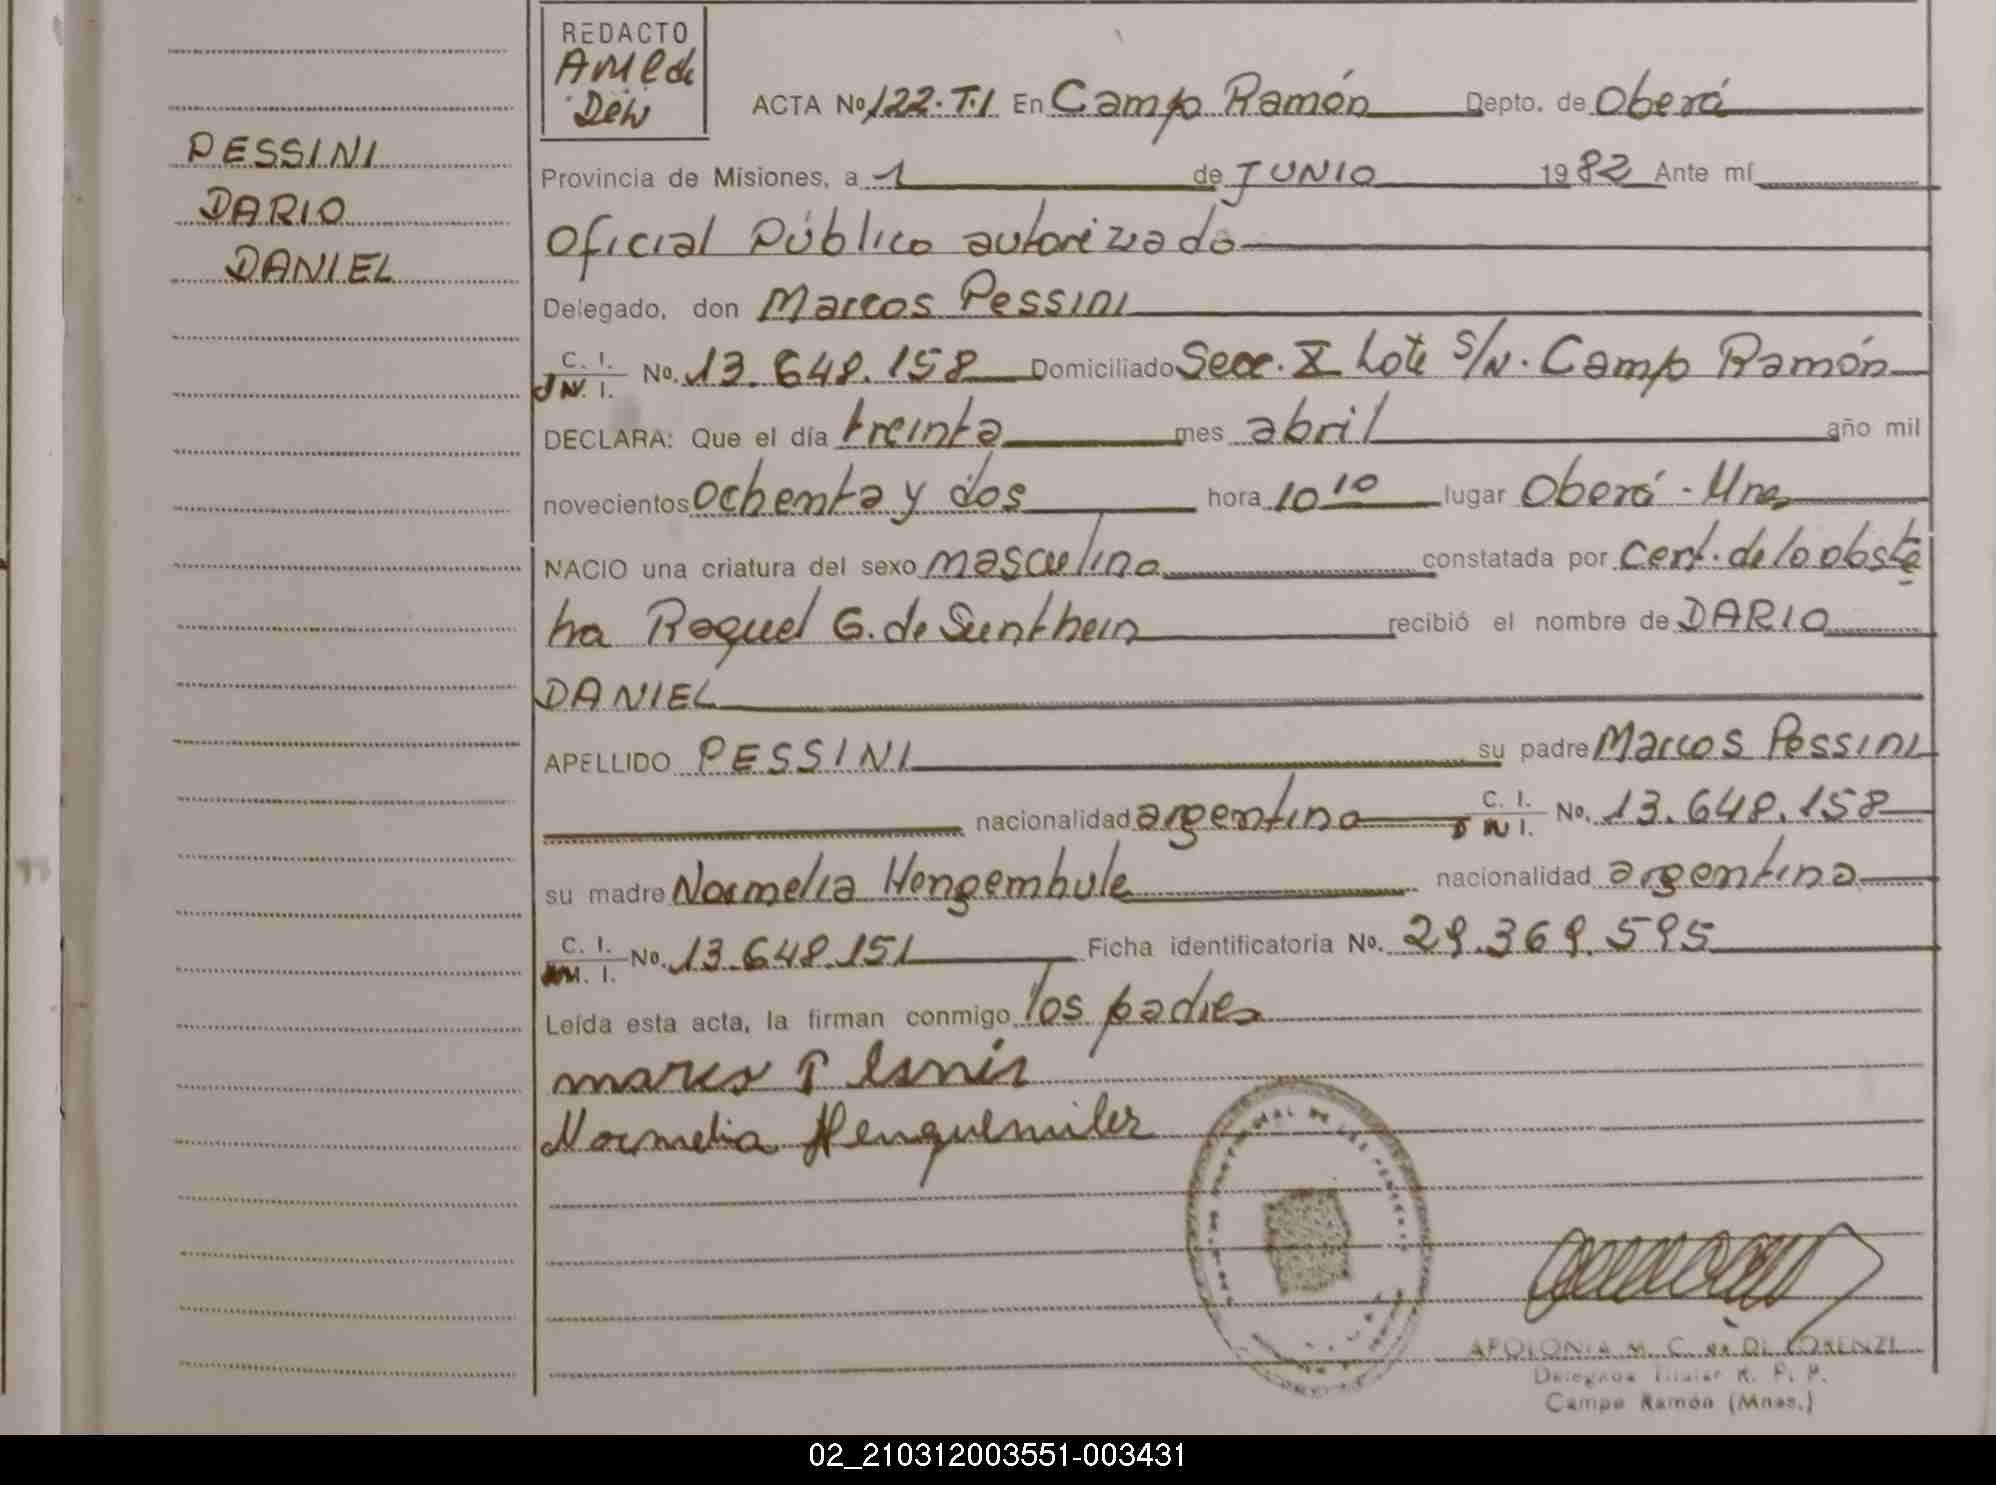 REDACTO
PESSINI
DARIO
DANIEL
ACTA No 122.T.I En Campo Ramón Depto. de Oberá
Provincia de Misiones, a 1 de JUNIO 1982 Ante mí
Oficial Público autorizado
Delegado, don Marcos Pessini
C. I. No. 13.648.158 Domiciliado Secc. X Lote S/N. Campo Ramón
DECLARA: Que el día treinta mes abril año mil
novecientos ochenta y dos hora 10 10 lugar Oberá - Mnes
NACIO una criatura del sexo masculino constatada por Cert. de la obsté
tra Raquel G. de Sunthein recibió el nombre de DARIO
DANIEL
APELLIDO PESSINI su padre Marcos Pessini
nacionalidad argentina C. I. D N I. No. 13.648.158
su madre Normelia Hengembule nacionalidad argentina
C. I. No. 13.648.151 Ficha identificatoria No. 29.369.595
Leída esta acta, la firman conmigo los padres
Normelia Henguemiler
APOLONIA M. C. de DI LORENZI
Delegada Titular R. P. P.
Campo Ramón (Mnes.)
02_210312003551-003431